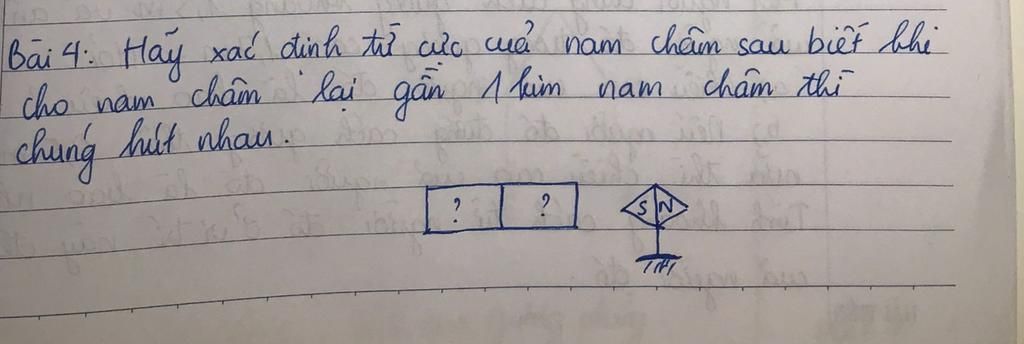 Bài 4: Hãy xác định từ cực cuả nam châm sau biết khi
cho nam châm lại gần 1 kim nam châm thì
chúng hút nhau.
? ? S N